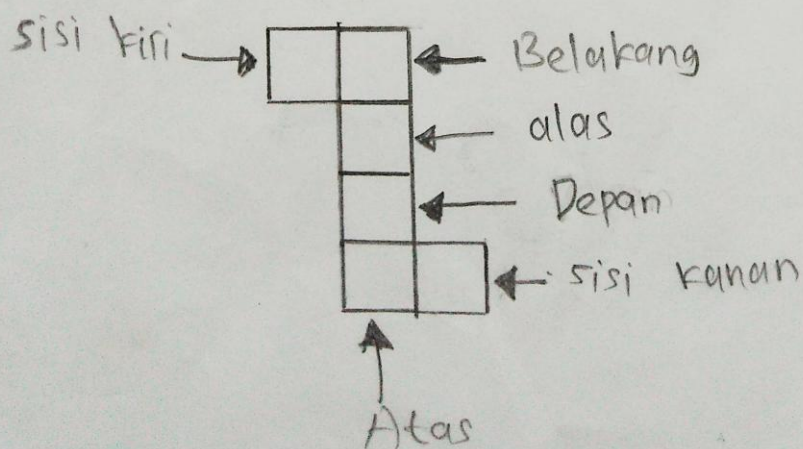 sisi kiri
Belakang
alas
Depan
sisi kanan
Atas